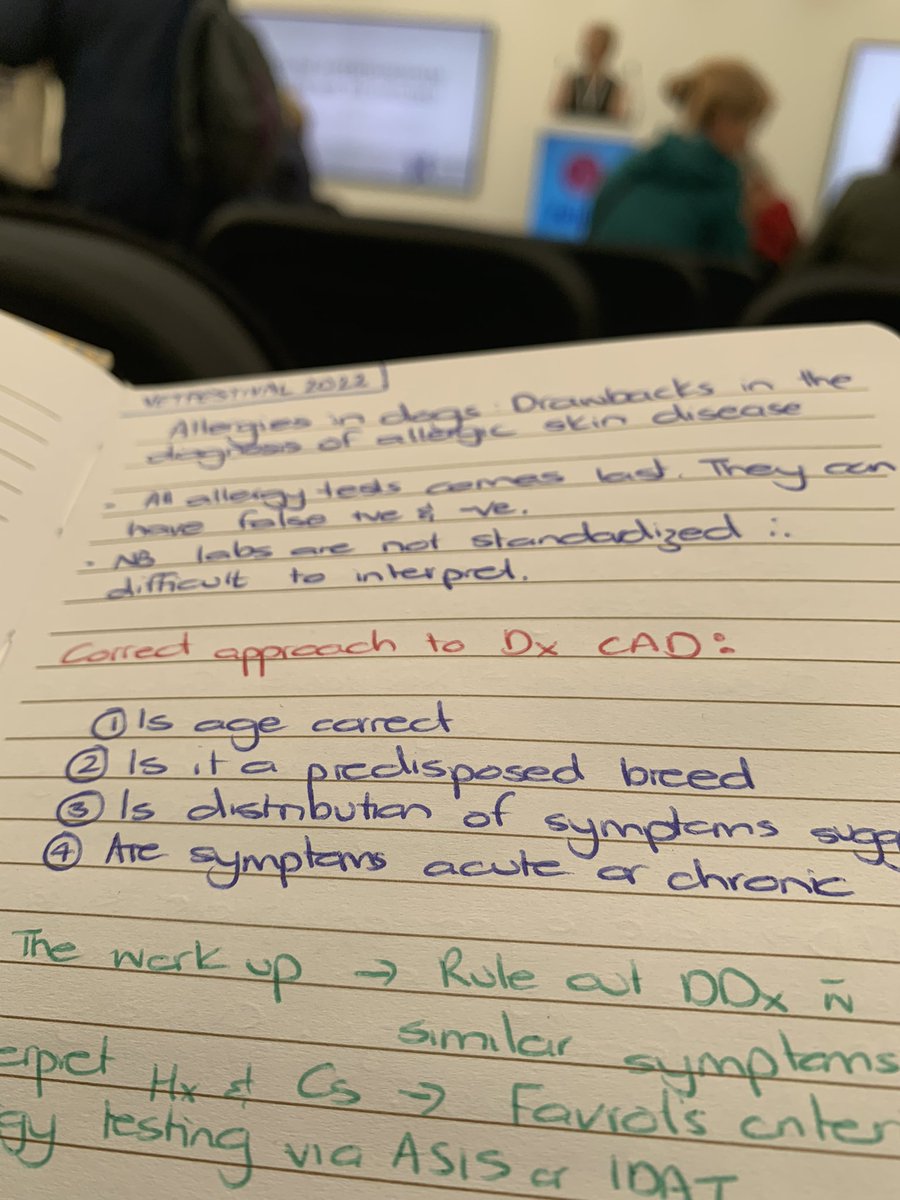 VETFESTIVAL 2022
Allergies in dogs: Drawbacks in the
diagnosis of allergic skin disease
- All allergy tests comes last. They can
have false +ve & -ve.
- NB labs are not standardized ∴
difficult to interpret.
Correct approach to Dx CAD:
① Is age correct
② Is it a predisposed breed
③ Is distribution of symptoms sugg
④ Are symptoms acute or chronic
The work up → Rule out DDx w̄
similar symptoms
erpret Hx & Cs → Favrol's criter
gy testing via ASIS or IDAT